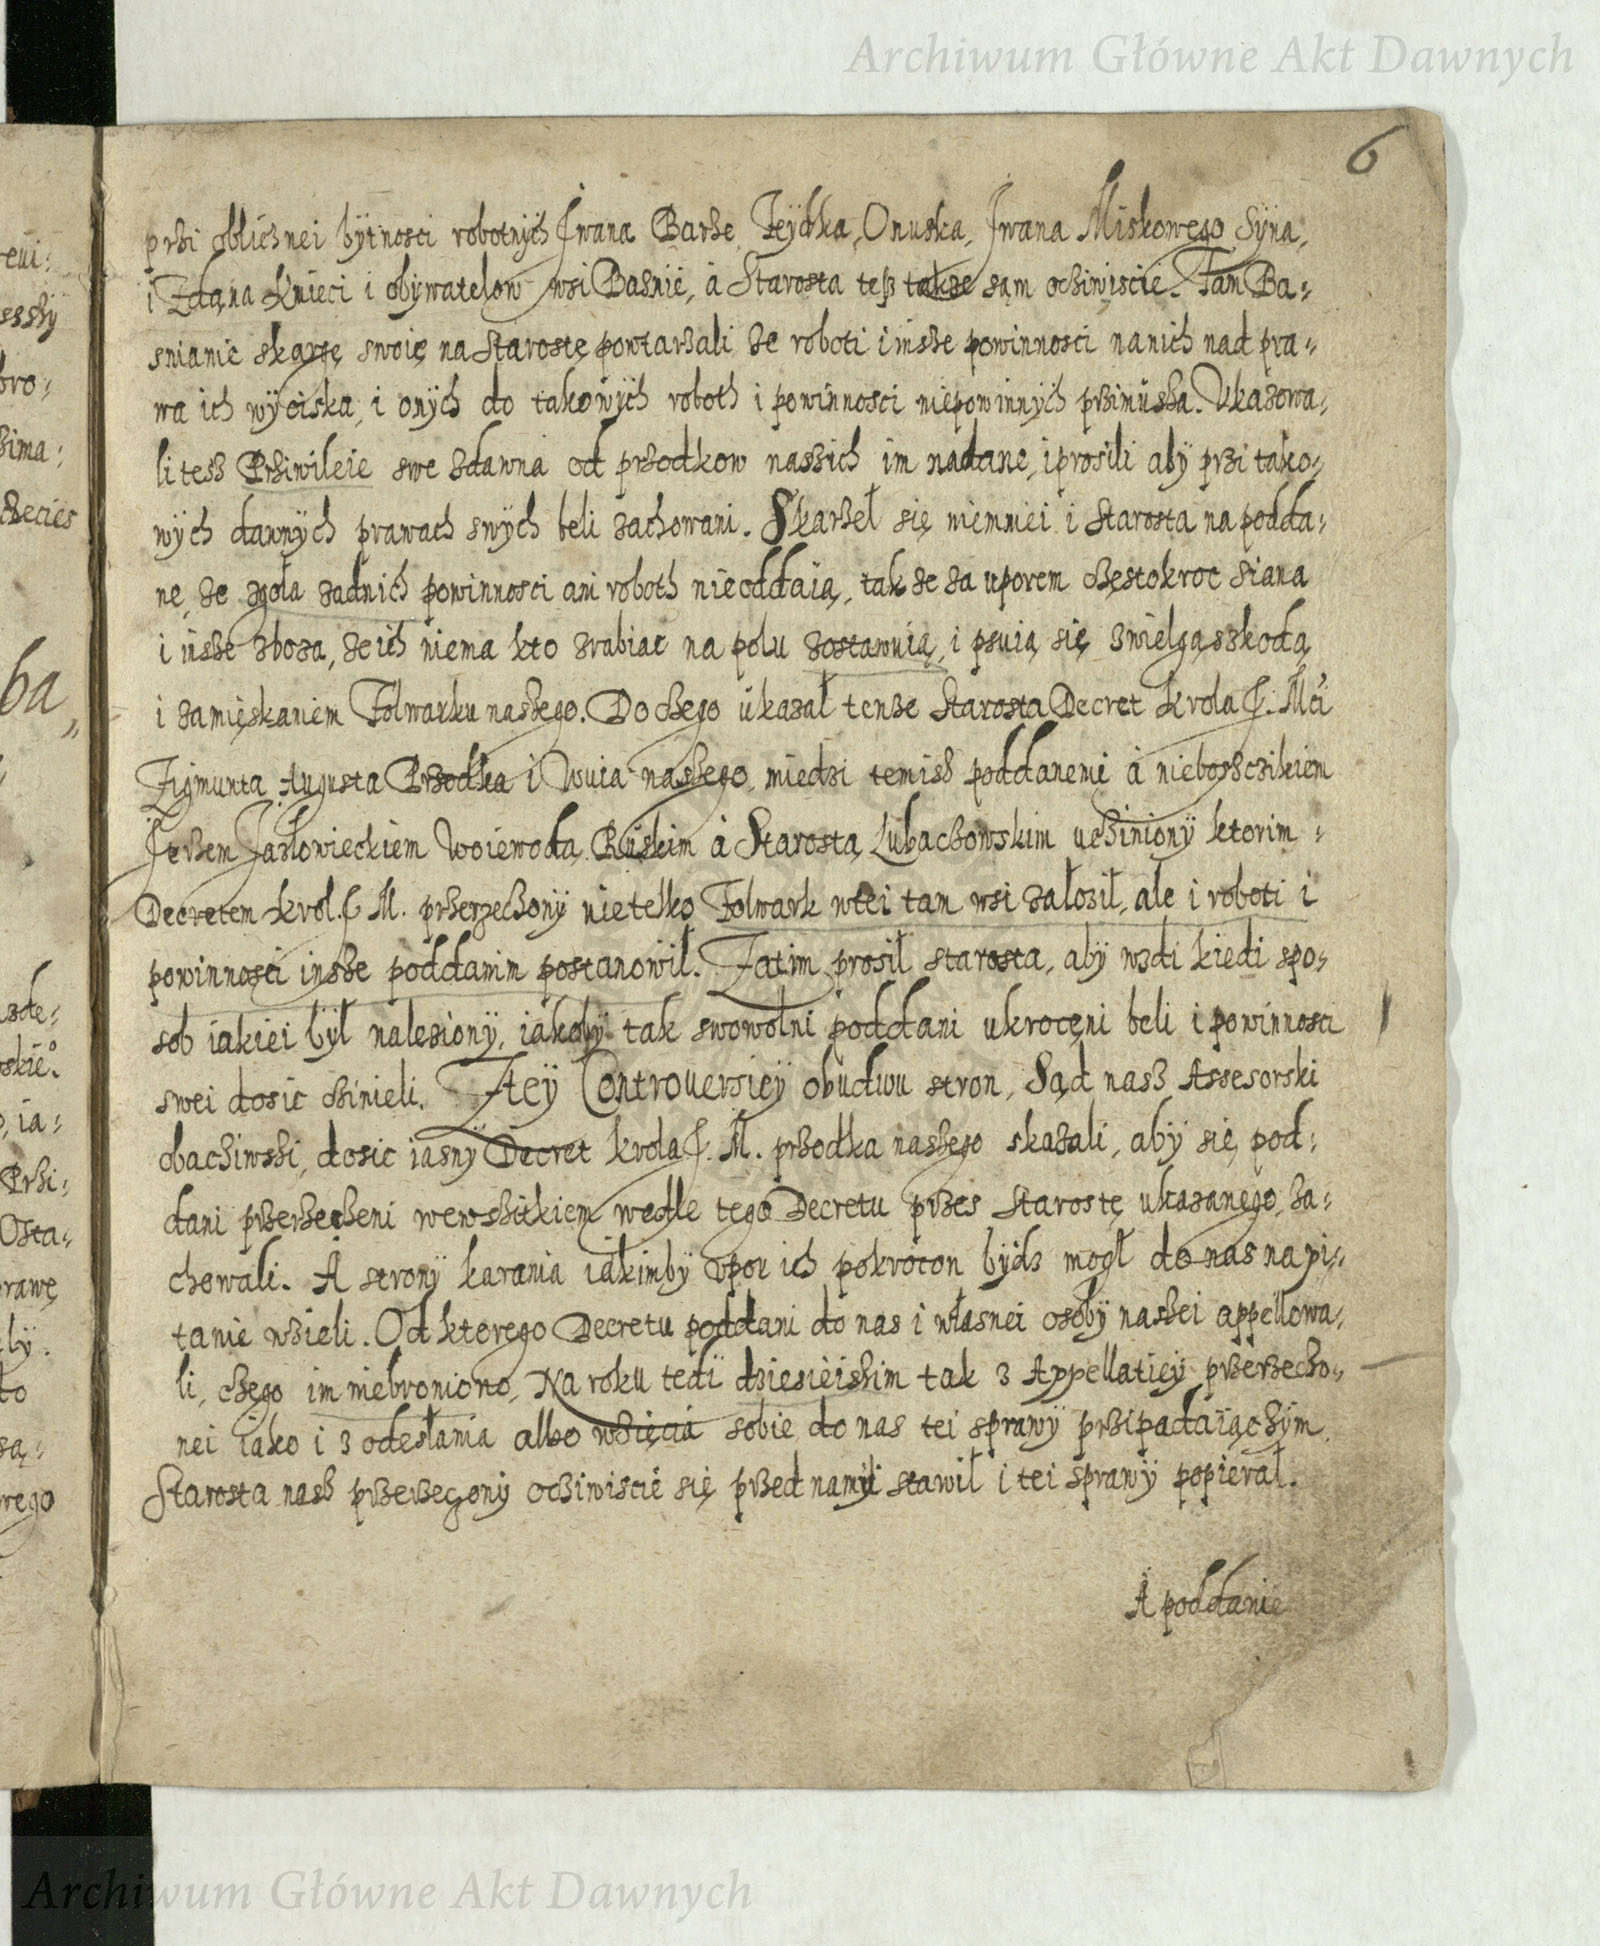 Archiwum Główne Akt Dawnych
6
przi oblicznei bytnosci robotnych Jwana Barze, Feÿdka, Onuska, Jwana Miskowego Sÿna,
i Zdana kmieci i obÿwatelow wsi Basnie, à Starosta tesz takze sam oczwiscie. Tam Ba-
snianie skargę swoię na Starostę powtarzali ze roboti i insze powinnosci nanich nad pra-
wa ich wÿciska, i onÿch do takowÿch roboth i powinnosci niepowinnÿch przimusza. Ukazowa-
li tesz Prziwileie swe zdawna od przodkow naszich im nadane, i prosili abÿ przi tako-
wÿch dawnÿch prawach swÿch beli zachowani. Skarzeł się niemniei i Starosta na podda-
ne, ze zgoła zadnich powinnosci ani roboth nieoddaią, tak ze za uporem częstokroc siana
i insze zboza, ze ich niema kto zrabiac na polu zostawuią, i psuią się z wielgą szkodą
i zamięskaniem Folwarku naszego. Do czego ukazał tenze Starosta Decret krola J. Mci
Zigmunta Augusta Przodka i Wuia naszego, miedzi temisz poddanemi à nieboszczikiem
Jerzem Jazłowieckiem Woiewodą Ruskim à Starostą Lubaczowskim uczinionÿ ktorim
Decretem krol. J M. przerzeczonÿ nietelko Folwark wtei tam wsi załoził, ale i roboti i
powinnosci insze poddanim postanowił. Zatim prosił starosta, abÿ wzdi kiedi spo-
sob iakiei bÿł nalezionÿ, iakobÿ tak swowolni poddani ukroceni beli i powinnosci
swei dosic czinieli. Z teÿ Controuersieÿ obudwu stron, Sąd nasz Assesorski
obacziwszi, dosic iasnÿ Decret krola J. M. przodka naszego skazali, abÿ się pod-
dani przerzeczeni wewszitkiem wedle tego Decretu przes Starostę ukazanego, za-
chowali. A stronÿ karania iakimbÿ upor ich pokrocon bÿdz mogł do nas na pi-
tanie wzieli. Od ktorego Decretu poddani do nas i własnei osobÿ naszei appellowa-
li, czego im niebroniono. Na roku tedi dzisieiszim tak z Appellatieÿ przerzeczo-
nei iako i z odesłania albo wzięcia sobie do nas tei sprawÿ przipadaiączÿm
Starosta nasz przerzeczonÿ oczwiscie się przed nami stawił i tei sprawÿ popierał.
A poddanie
Archiwum Główne Akt Dawnych